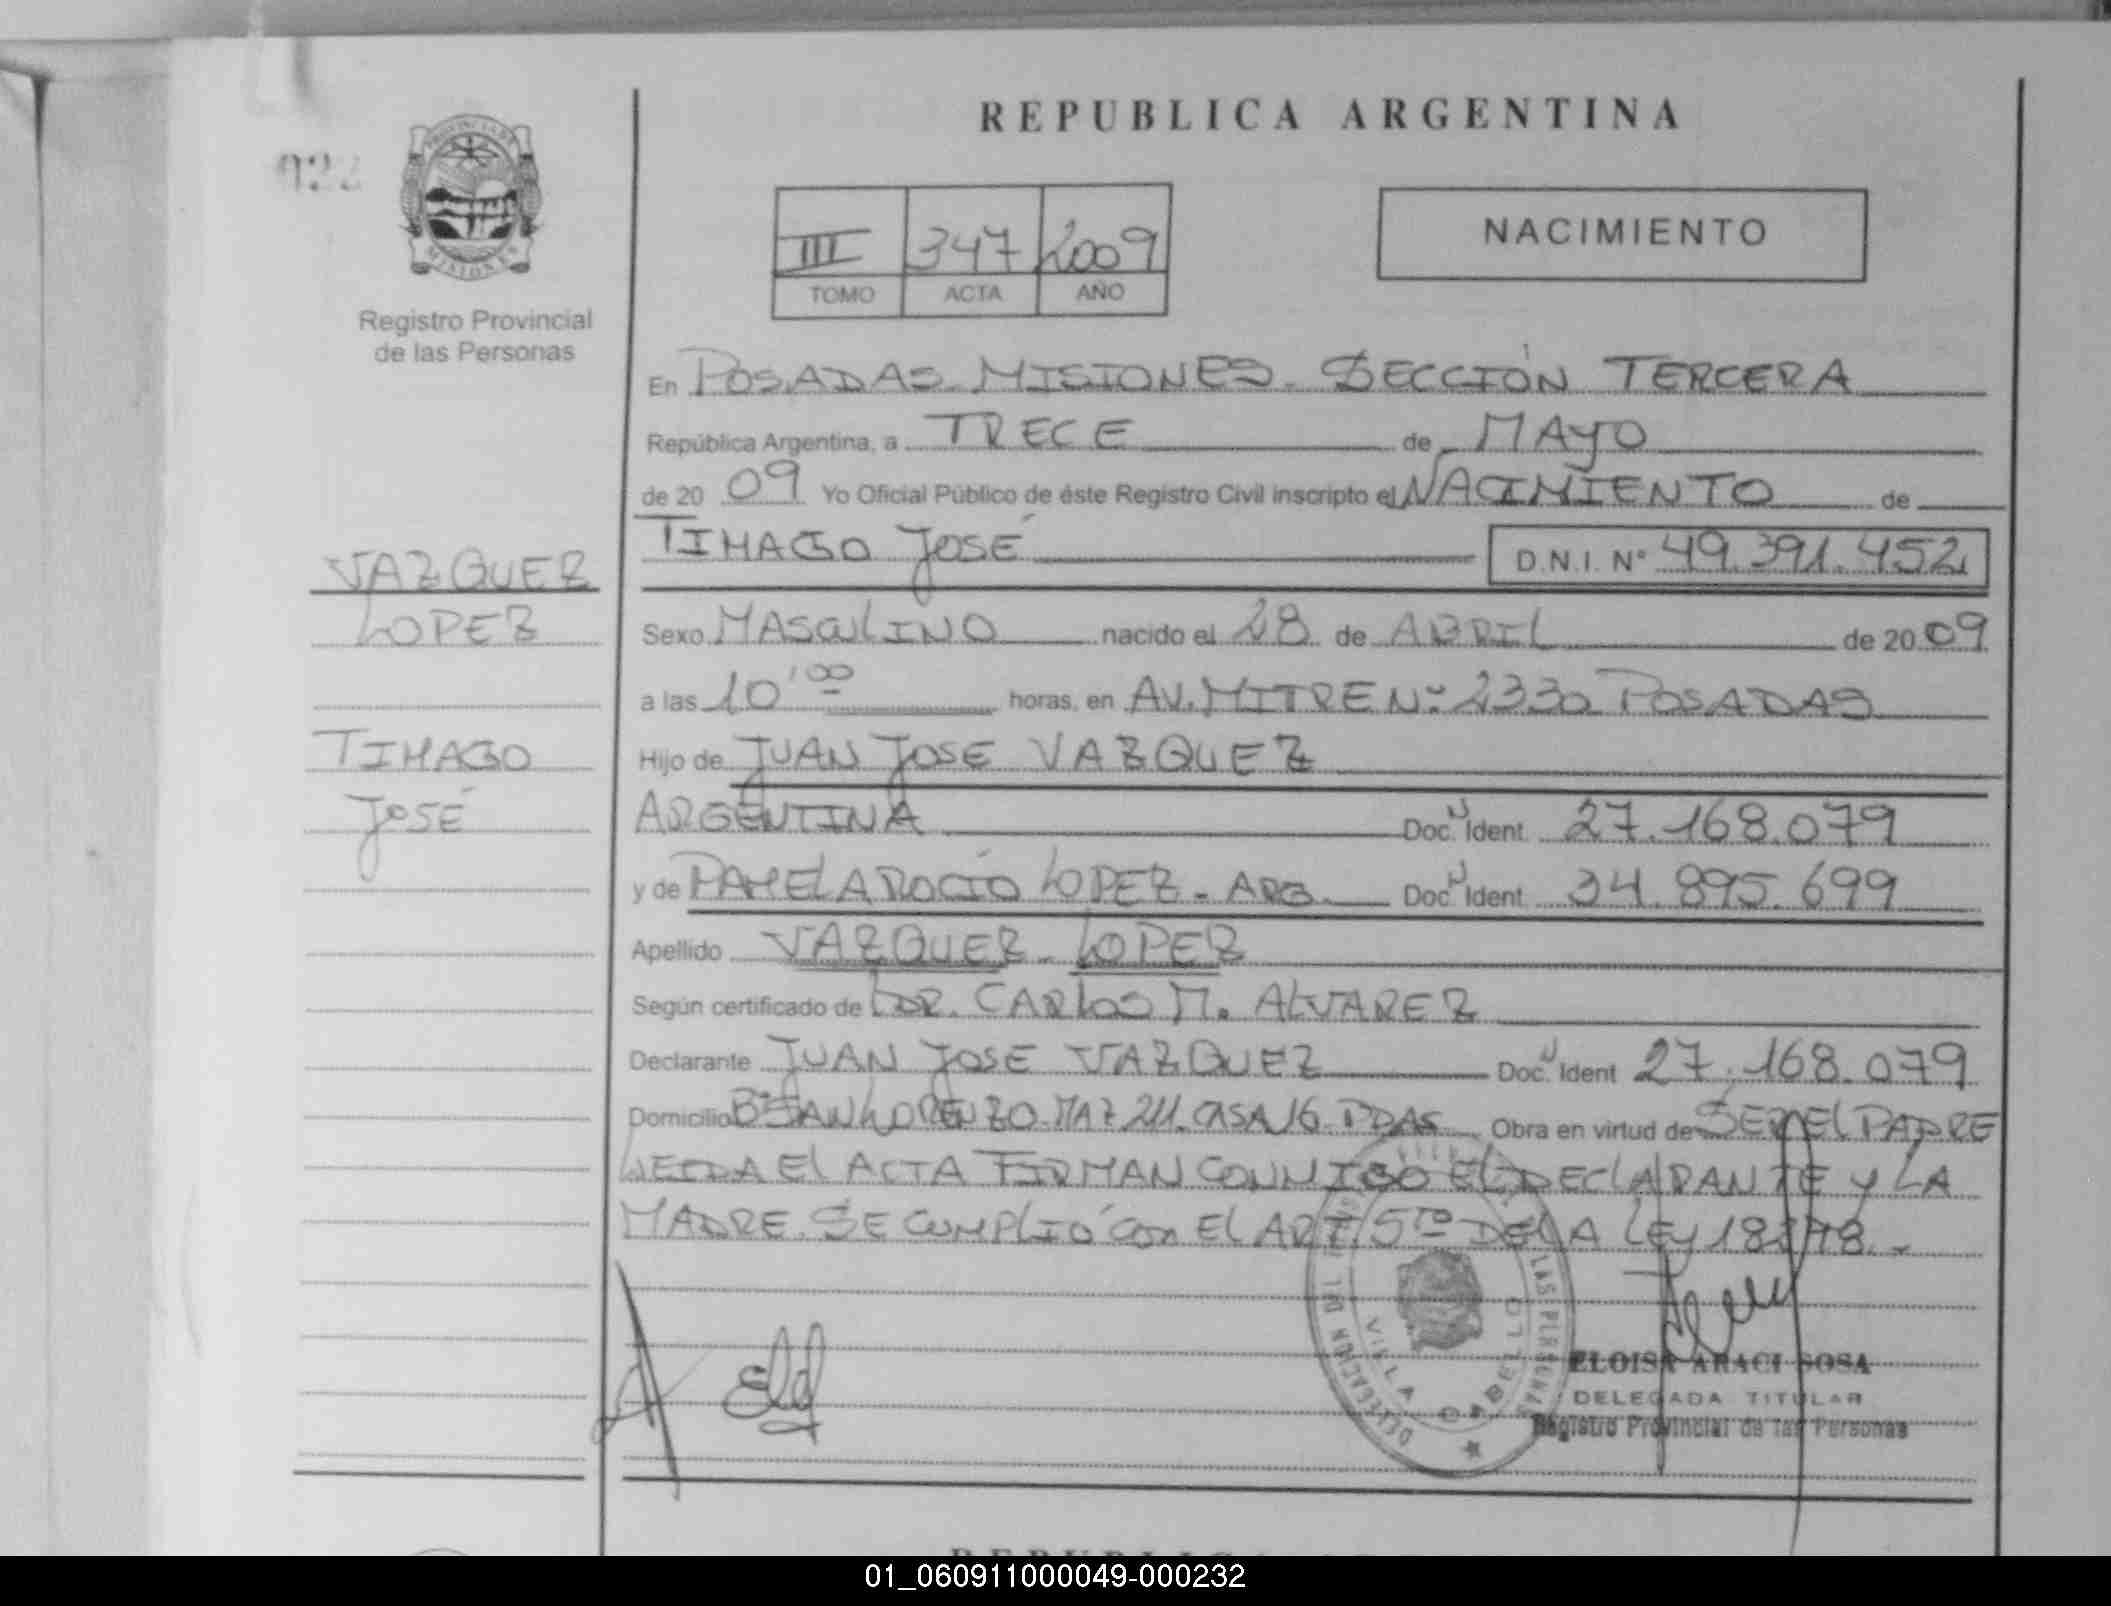 REPUBLICA ARGENTINA
022
PROVINCIA DE
MISIONES
Registro Provincial
de las Personas
III 347 2009
TOMO ACTA AÑO
NACIMIENTO
En POSADAS MISIONES - SECCIÓN TERCERA
República Argentina, a TRECE de MAYO
de 20 09 Yo Oficial Público de éste Registro Civil inscripto el NACIMIENTO de
TIHAGO JOSÉ D.N.I. Nº 49.391.452
VAZQUEZ
LOPEZ
TIHAGO
JOSÉ
Sexo MASCULINO nacido el 28 de ABRIL de 20 09
a las 10'00 horas, en AV. MITRE Nº 2330 POSADAS
Hijo de JUAN JOSE VAZQUEZ
ARGENTINA Doc. Ident. 27.168.079
y de PAMELA ROCIO LOPEZ - ARG. Doc. Ident. 34.895.699
Apellido VAZQUEZ - LOPEZ
Según certificado de DR. CARLOS M. ALVAREZ
Declarante JUAN JOSE VAZQUEZ Doc. Ident 27.168.079
Domicilio Bº SAN LORENZO MAZ 211. CASA 16 PDAS Obra en virtud de SER EL PADRE
LEIDA El ACTA FIRMAN CONMIGO EL DECLARANTE y LA
MADRE. SE CUMPLIÓ con El ART. 5to DE LA LEY
DELEGACION DEL LAS PERSONAS
VILLA CABELLO
ELOISA ARACI SOSA
DELEGADA TITULAR
Registro Provincial de las Personas
01_060911000049-000232